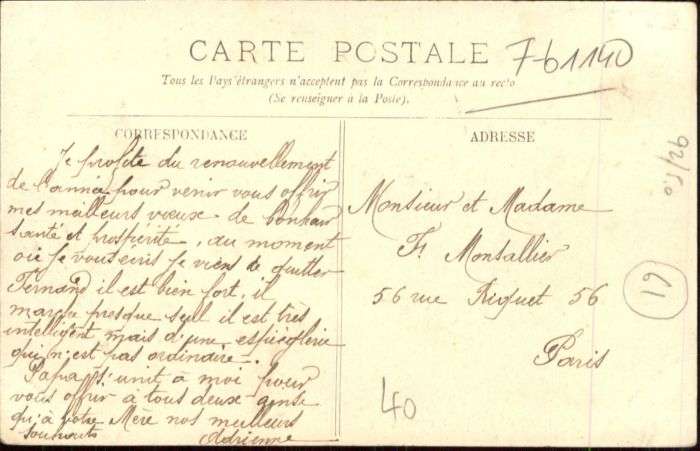 CARTE POSTALE
761140
Tous les Pays étrangers n'acceptent pas la Correspondance au recto
(Se renseigner à la Poste).
CORRESPONDANCE
Je profite du renouvellement
de l'année pour venir vous offrir
mes meilleurs vœux de bonheur
santé et prospérité, au moment
où je vous écris je viens de quitter
Fernand il est bien fort, il
marche presque seul il est très
intelligent mais d'une espièglerie
qui n'est pas ordinaire.
Papa s'unit à moi pour
vous offrir à tous deux ainsi
qu'à votre Mère nos meilleurs
souhaits
Adrienne
ADRESSE
Monsieur et Madame
F. Montallier
56 rue Riquet 56
Paris
40
92/50
61